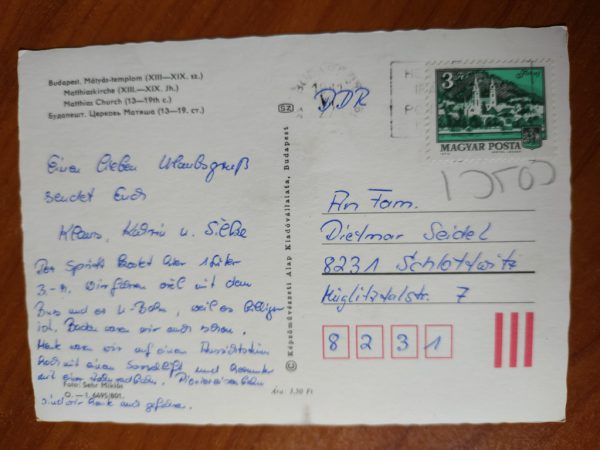 Budapest. Mátyás-templom (XIII—XIX. sz.)
Matthiaskirche (XIII.—XIX. Jh.)
Matthias Church (13—19th c.)
Будапешт. Церковь Матяша (13—19. ст.)
Einen lieben Urlaubsgruß
sendet Euch
Klaus, Katrin u. Silke
Der Sprit kostet hier 1 Liter
3.-M. Wir fahren viel mit dem
Bus und der U-Bahn, weil es billiger
ist. Baden waren wir auch schon.
Heute waren wir auf einem Aussichtsturm
hoch mit einem Sessellift und herunter
mit einer Zahnradbahn. Pioniereisenbahn
sind wir heute auch gefahren.
Foto: Sehr Miklós
Q.—1 6495/801.
Ára: 3,50 Ft
SZ
© Képzőművészeti Alap Kiadóvállalata, Budapest
DDR
3 Ft
MAGYAR POSTA
An Fam.
Dietmar Seidel
8231 Schlottwitz
Müglitztalstr. 7
8 2 3 1